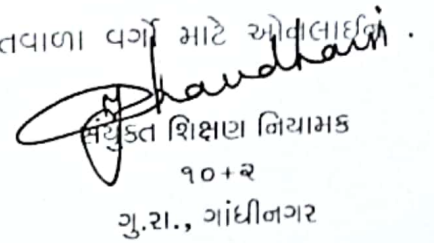 તવાળા વર્ગો માટે ઓનલાઈન .
Chaudhari
સંયુક્ત શિક્ષણ નિયામક
૧૦+૨
ગુ.રા., ગાંધીનગર